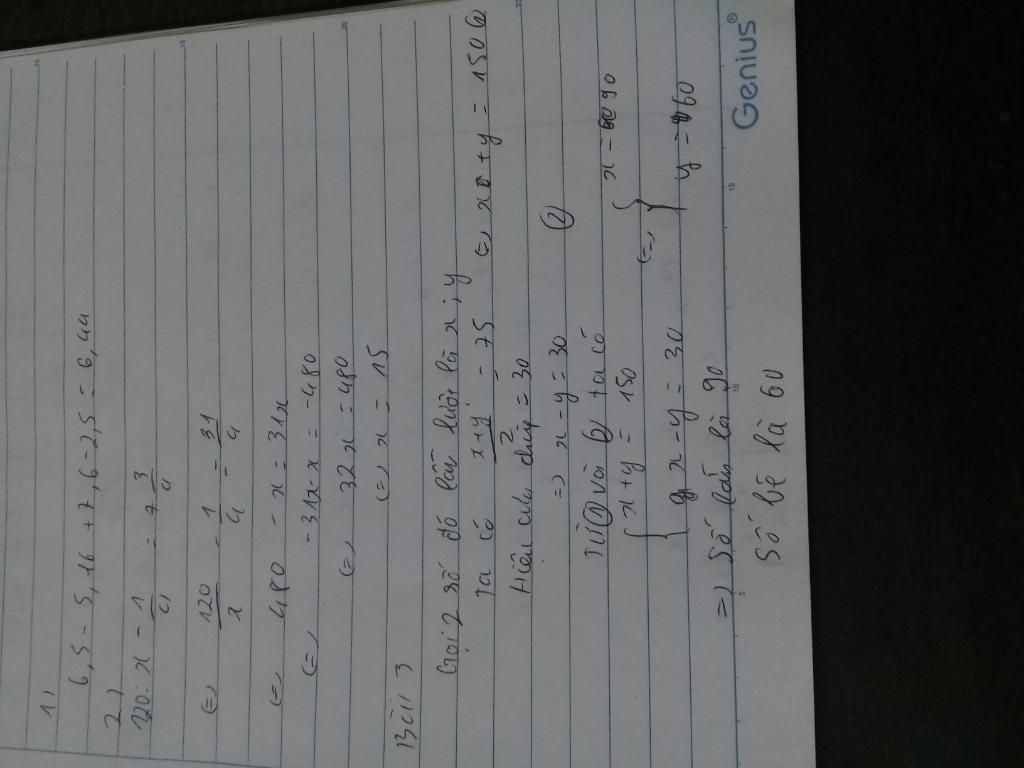 1)
6,5 - 5,16 + 7,6 - 2,5 = 6,44
2)
120 : x - 1/4 = 7 3/4
(=) 120/x - 1/4 = 31/4
(=) 480 - x = 31x
(=) -31x - x = -480
(=) 32x = 480
(=) x = 15
Bài 3
Gọi 2 số đó lần lượt là x ; y
Ta có x+y/2 = 75 (=) x + y = 150 (1)
Hiệu của chúng = 30
=) x - y = 30 (2)
Từ (1) và (2) ta có
{ x + y = 150
{ x - y = 30 (=) { x = 90
{ y = 60
=) Số lớn là 90
Số bé là 60
Genius®